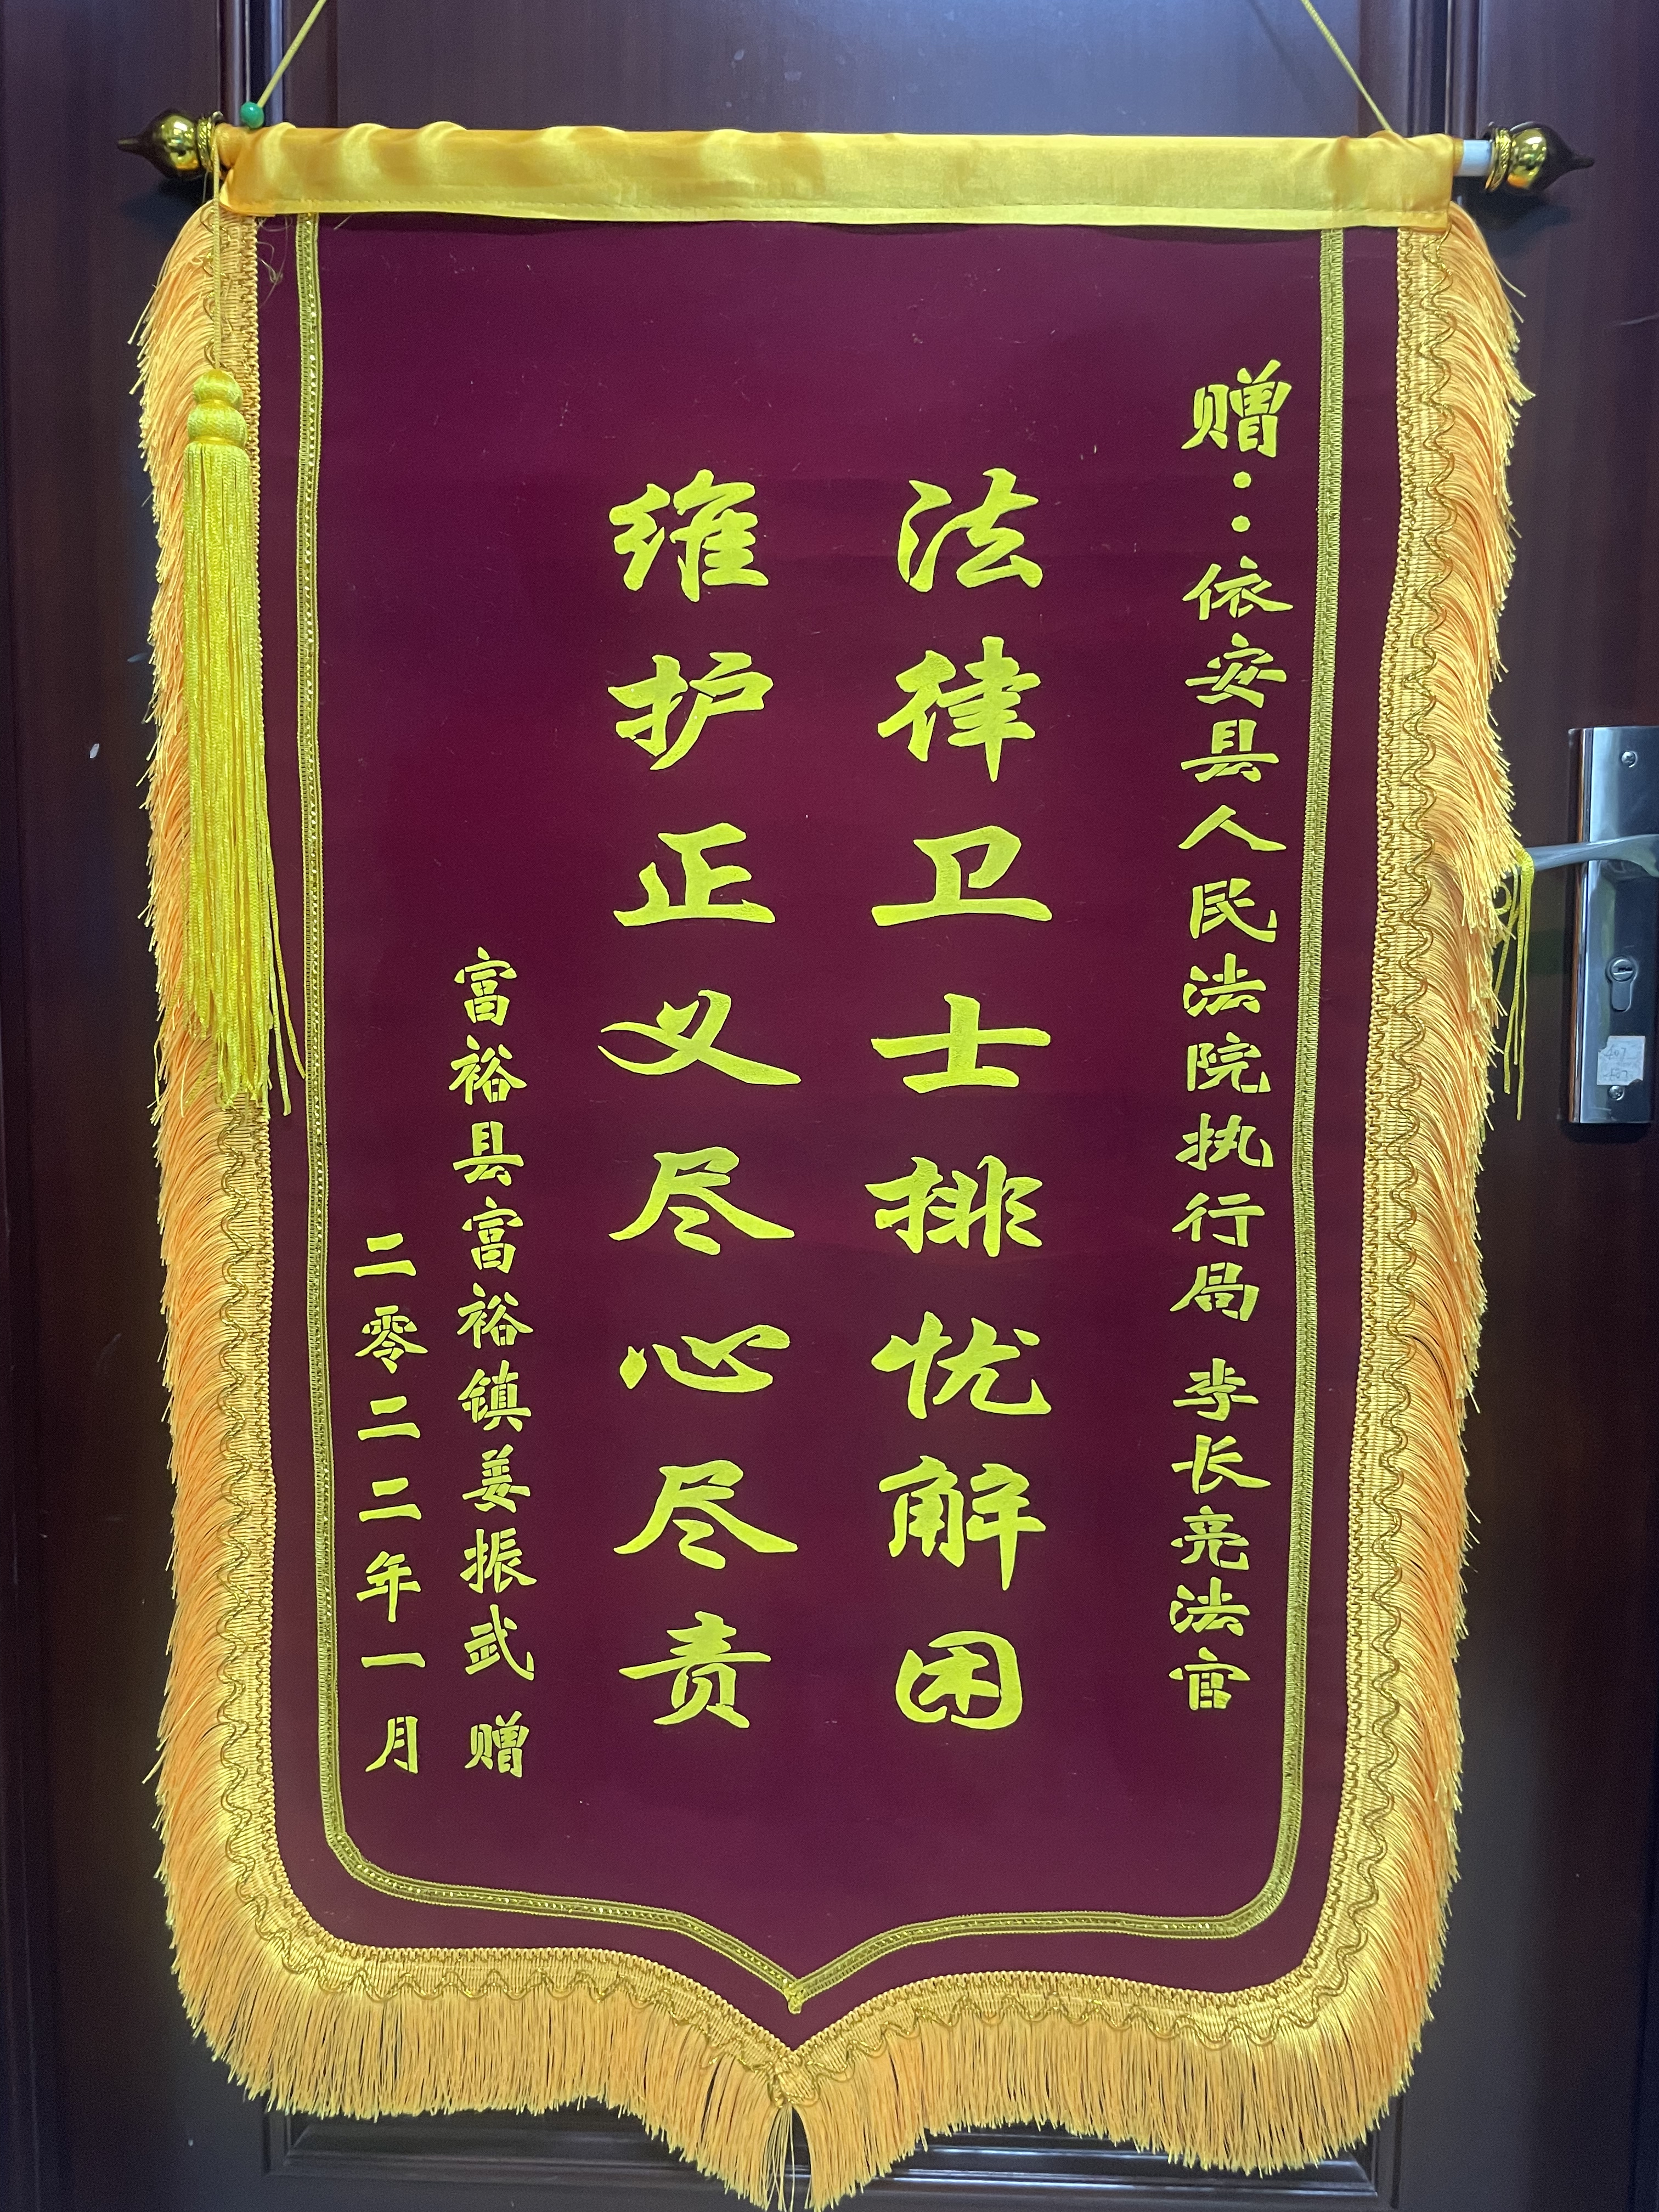 赠：依安县人民法院执行局 李长亮法官
法律卫士排忧解困
维护正义尽心尽责
富裕县富裕镇姜振武 赠
二零二二年一月